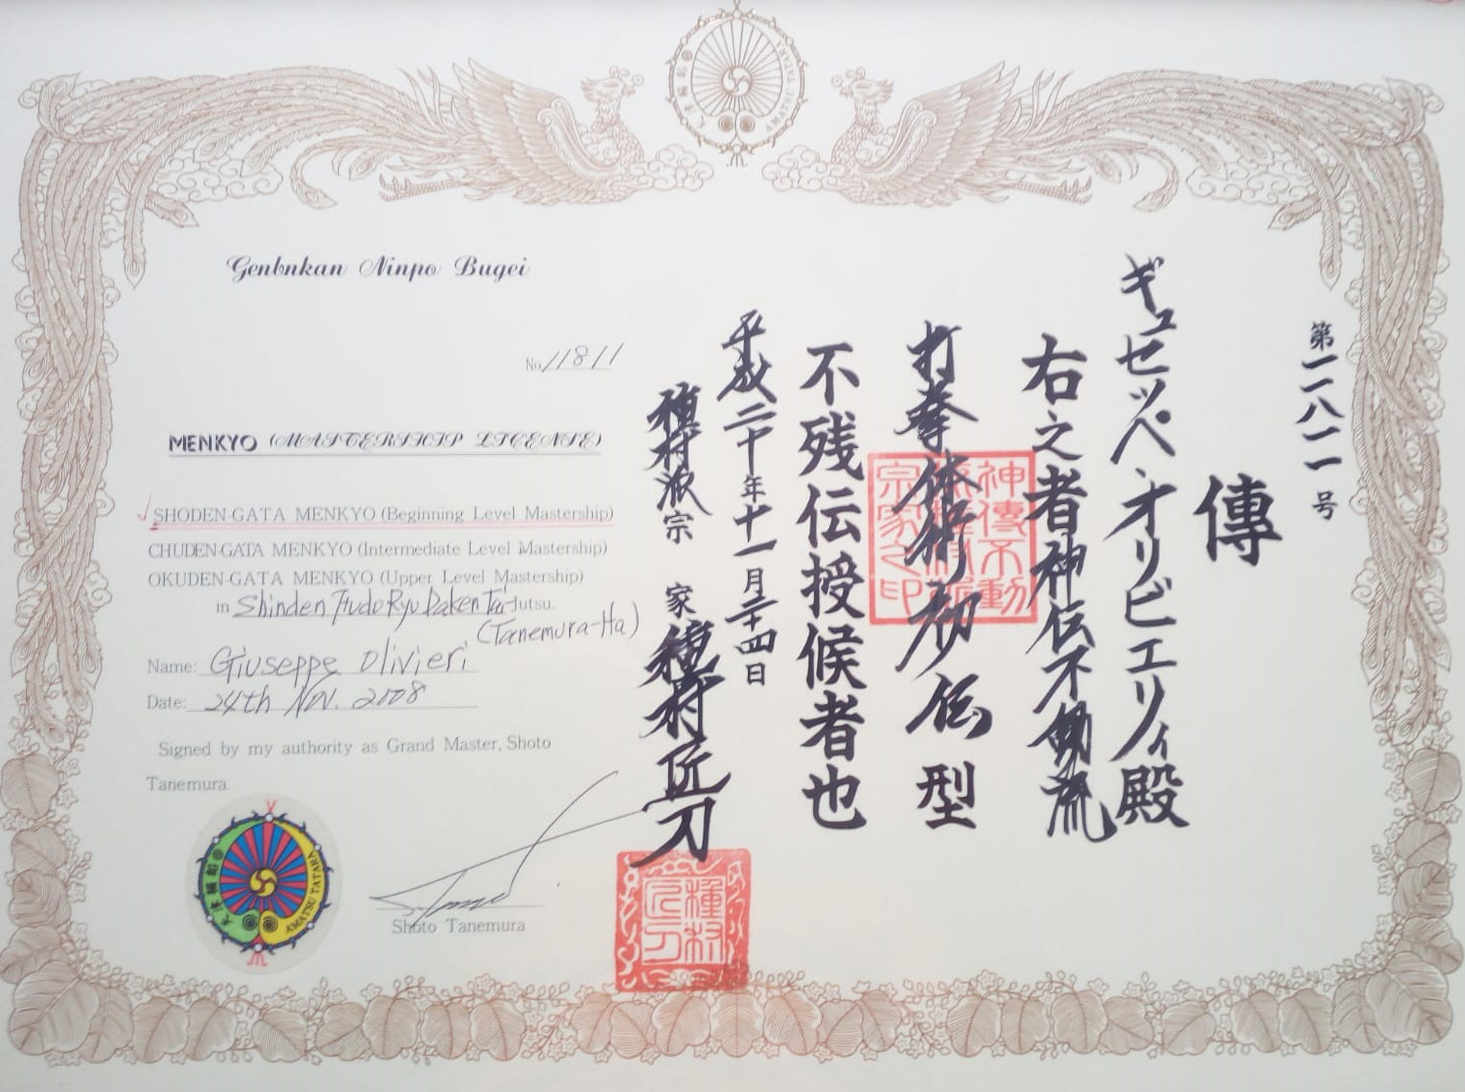 Genbnkan Ninpo Bugei
No. 11811
MENKYO (MASTERSHIP LICENSE)
SHODEN-GATA MENKYO (Beginning Level Mastership)
CHUDEN-GATA MENKYO (Intermediate Level Mastership)
OKUDEN-GATA MENKYO (Upper Level Mastership)
in Shinden Fudo Ryu Daken Tai-Jutsu.
(Tanemura-Ha)
Name: Giuseppe Olivieri
Date: 24th Nov. 2008
Signed by my authority as Grand Master, Shoto
Tanemura.
Shoto Tanemura
AMATSU TATARA
第一一八一一号
傳
ギュセッペ、オリビエリィ殿
右之者神伝不動流
打拳体術初伝型
不残伝授候者也
平成二十年十一月二十四日
種村派宗家 種村匠刀
神傳不動
宗家之印
種村
匠刀